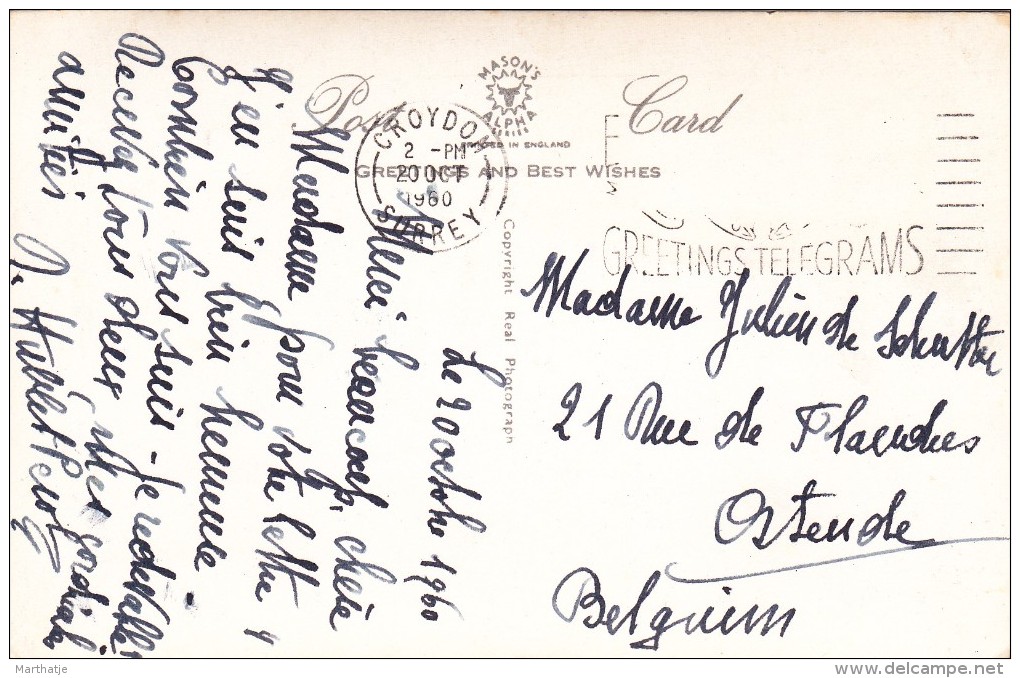 Post Card
MASON'S
ALPHA
SERIES
PRINTED IN ENGLAND
GREETINGS AND BEST WISHES
CROYDON
2 -PM
20 OCT
1960
SURREY
GREETINGS TELEGRAMS
Copyright Real Photograph
Le 20 octobre 1960
Merci beaucoup, chère
Madame, pour votre lettre
J'en suis bien heureuse
Combien vous suis-je redevable?
Recevez tous deux mes cordiales
amitiés
Madame Julien de Schutter
21 Rue de Flandres
Ostende
Belguim
Marthatje
delcampe.net